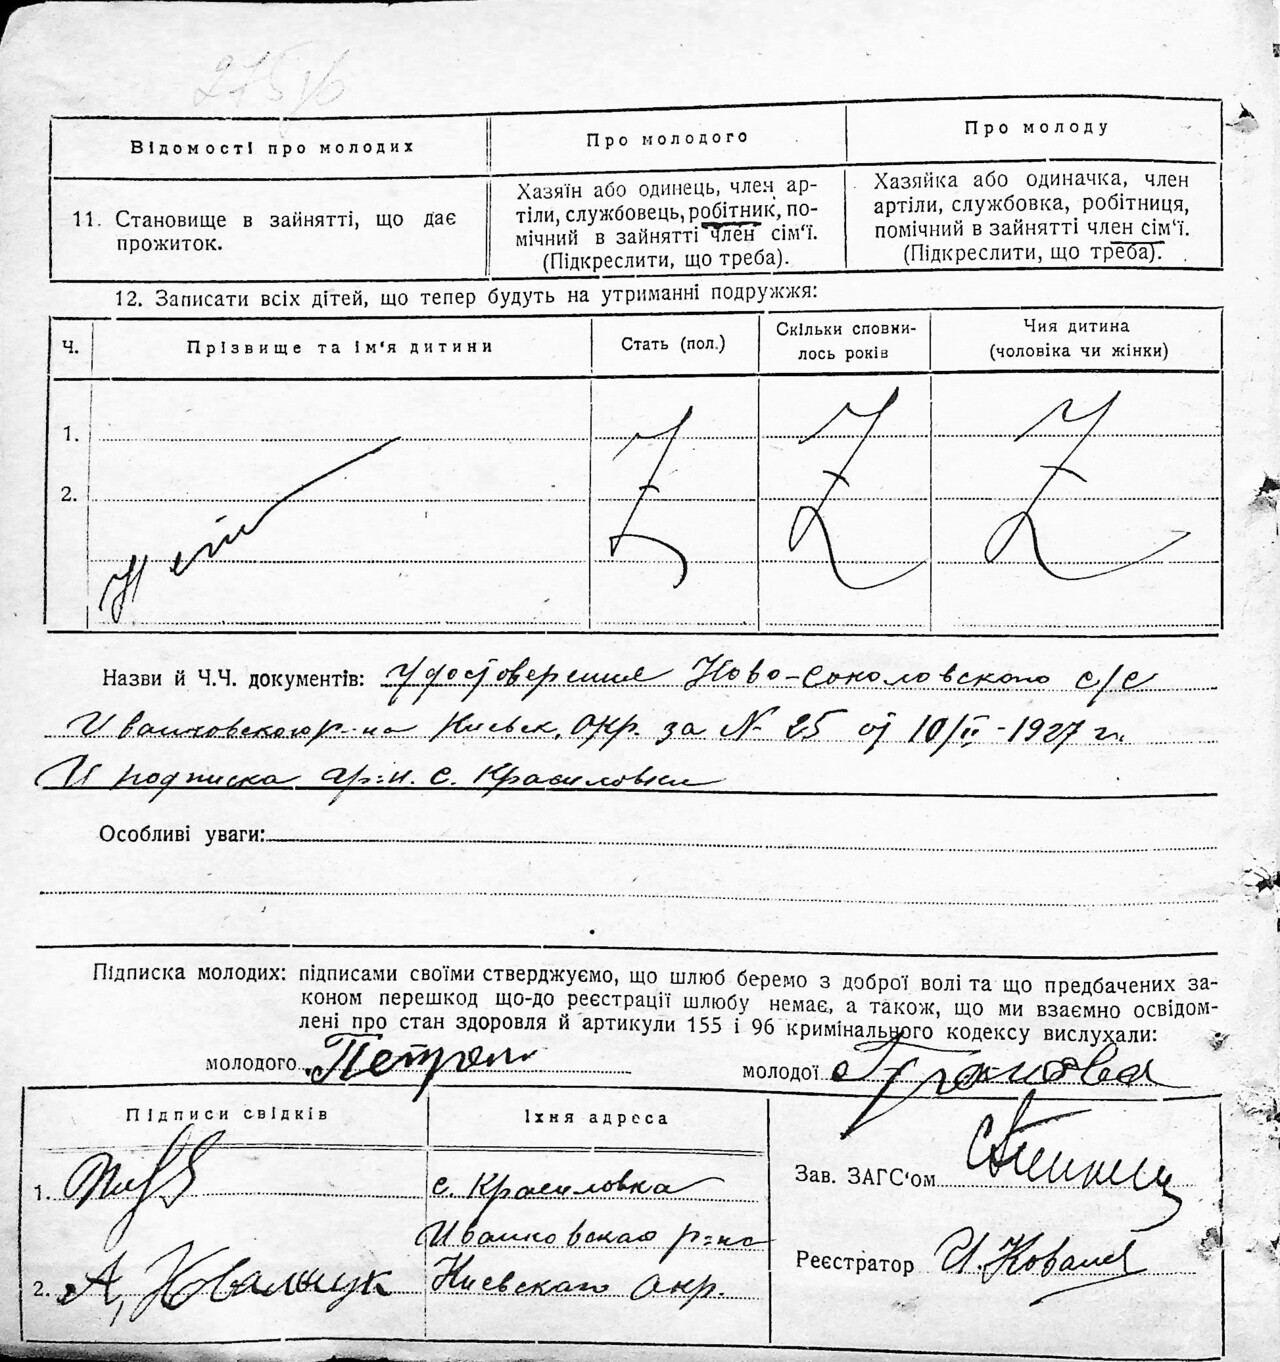 Відомості про молодих
Про молодого
Про молоду
11. Становище в зайнятті, що дає
прожиток.
Хазяїн або одинець, член ар-
тілі, службовець, робітник, по-
мічний в зайнятті член сім'ї.
(Підкреслити, що треба).
Хазяйка або одиначка, член
артілі, службовка, робітниця,
помічний в зайнятті член сім'ї.
(Підкреслити, що треба).
12. Записати всіх дітей, що тепер будуть на утриманні подружжя:
Ч.
Прізвище та ім'я дитини
Стать (пол.)
Скільки сповни-
лось років
Чия дитина
(чоловіка чи жінки)
1.
2.
Назви й Ч.Ч. документів: Удостоверения Ново-Соколовского с/с
Иванковского р-на Киевск. окр. за № 25 от 10/II-1927 г.
И подписка гр-н. с. Красиловки
Особливі уваги:
Підписка молодих: підписами своїми стверджуємо, що шлюб беремо з доброї волі та що предбачених за-
коном перешкод що-до реєстрації шлюбу немає, а також, що ми взаємно освідом-
лені про стан здоровля й артикули 155 і 96 кримінального кодексу вислухали:
молодого
молодої
Підписи свідків
Їхня адреса
1.
с. Красиловка
Иванковскаго р-на
2. А, Ковальчук
Киевскаго окр.
Зав. ЗАГС'ом
Реєстратор